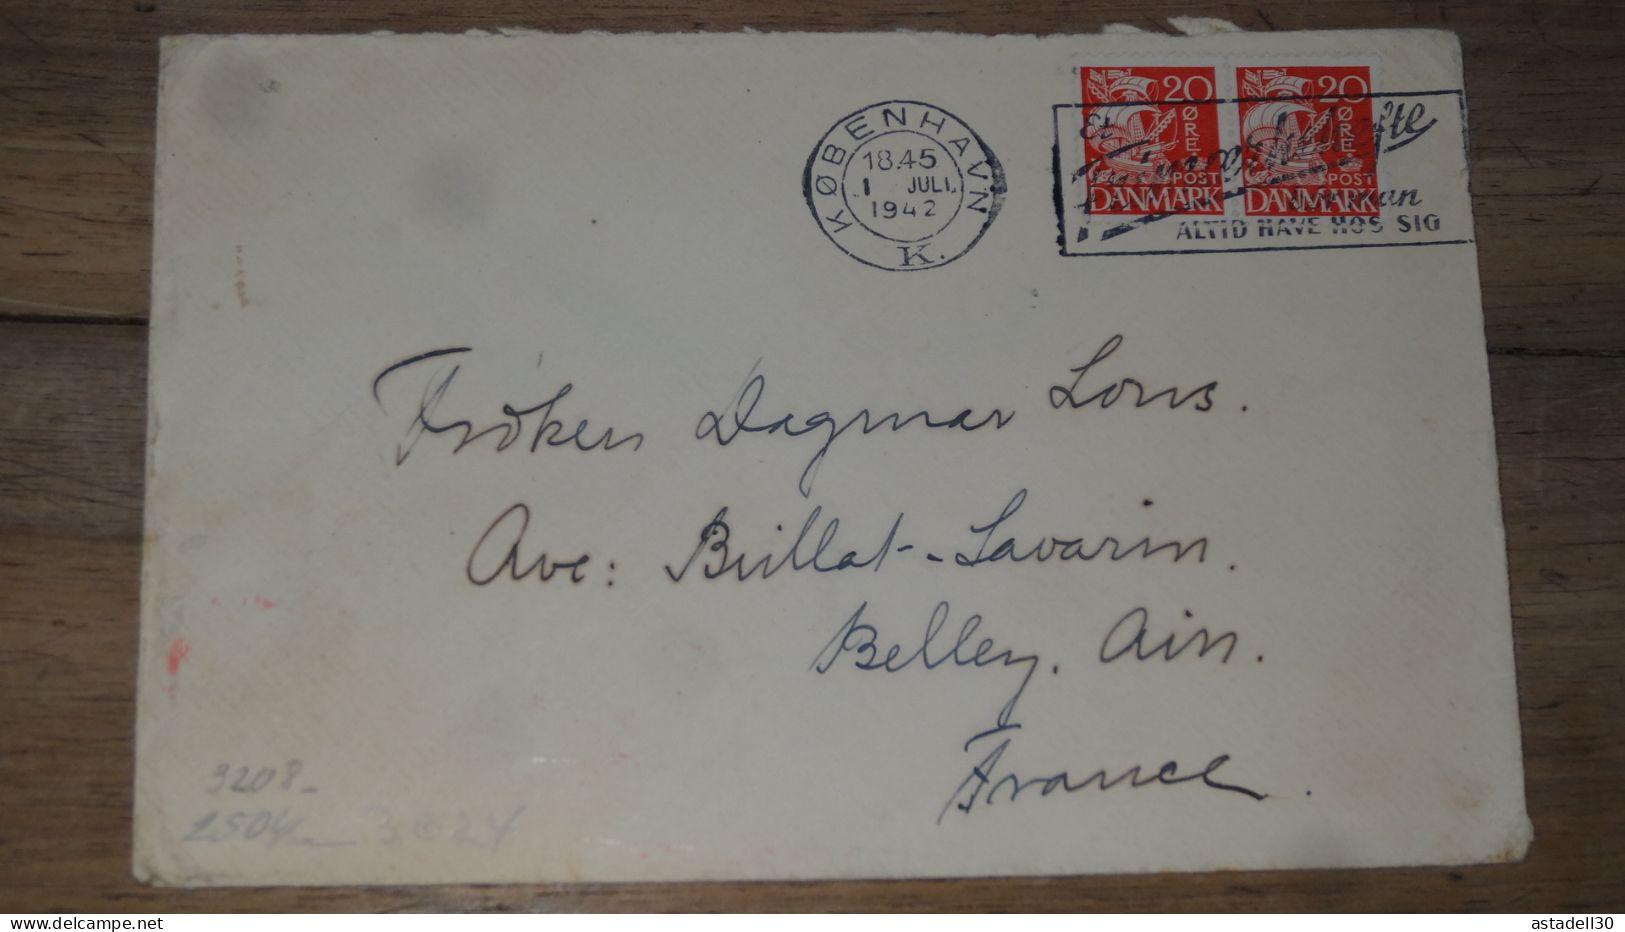 KØBENHAVN
18.45
1 JULI
1942
K.
20 ØRE
POST
DANMARK
20 ØRE
POST
DANMARK
Frimærkehefte
man
ALTID HAVE HOS SIG
Frøken Dagmar Lons.
Ave: Brillat-Savarin.
Belley. Ain.
France.
3208-
2504
3024
www.delcampe.net
astadell30